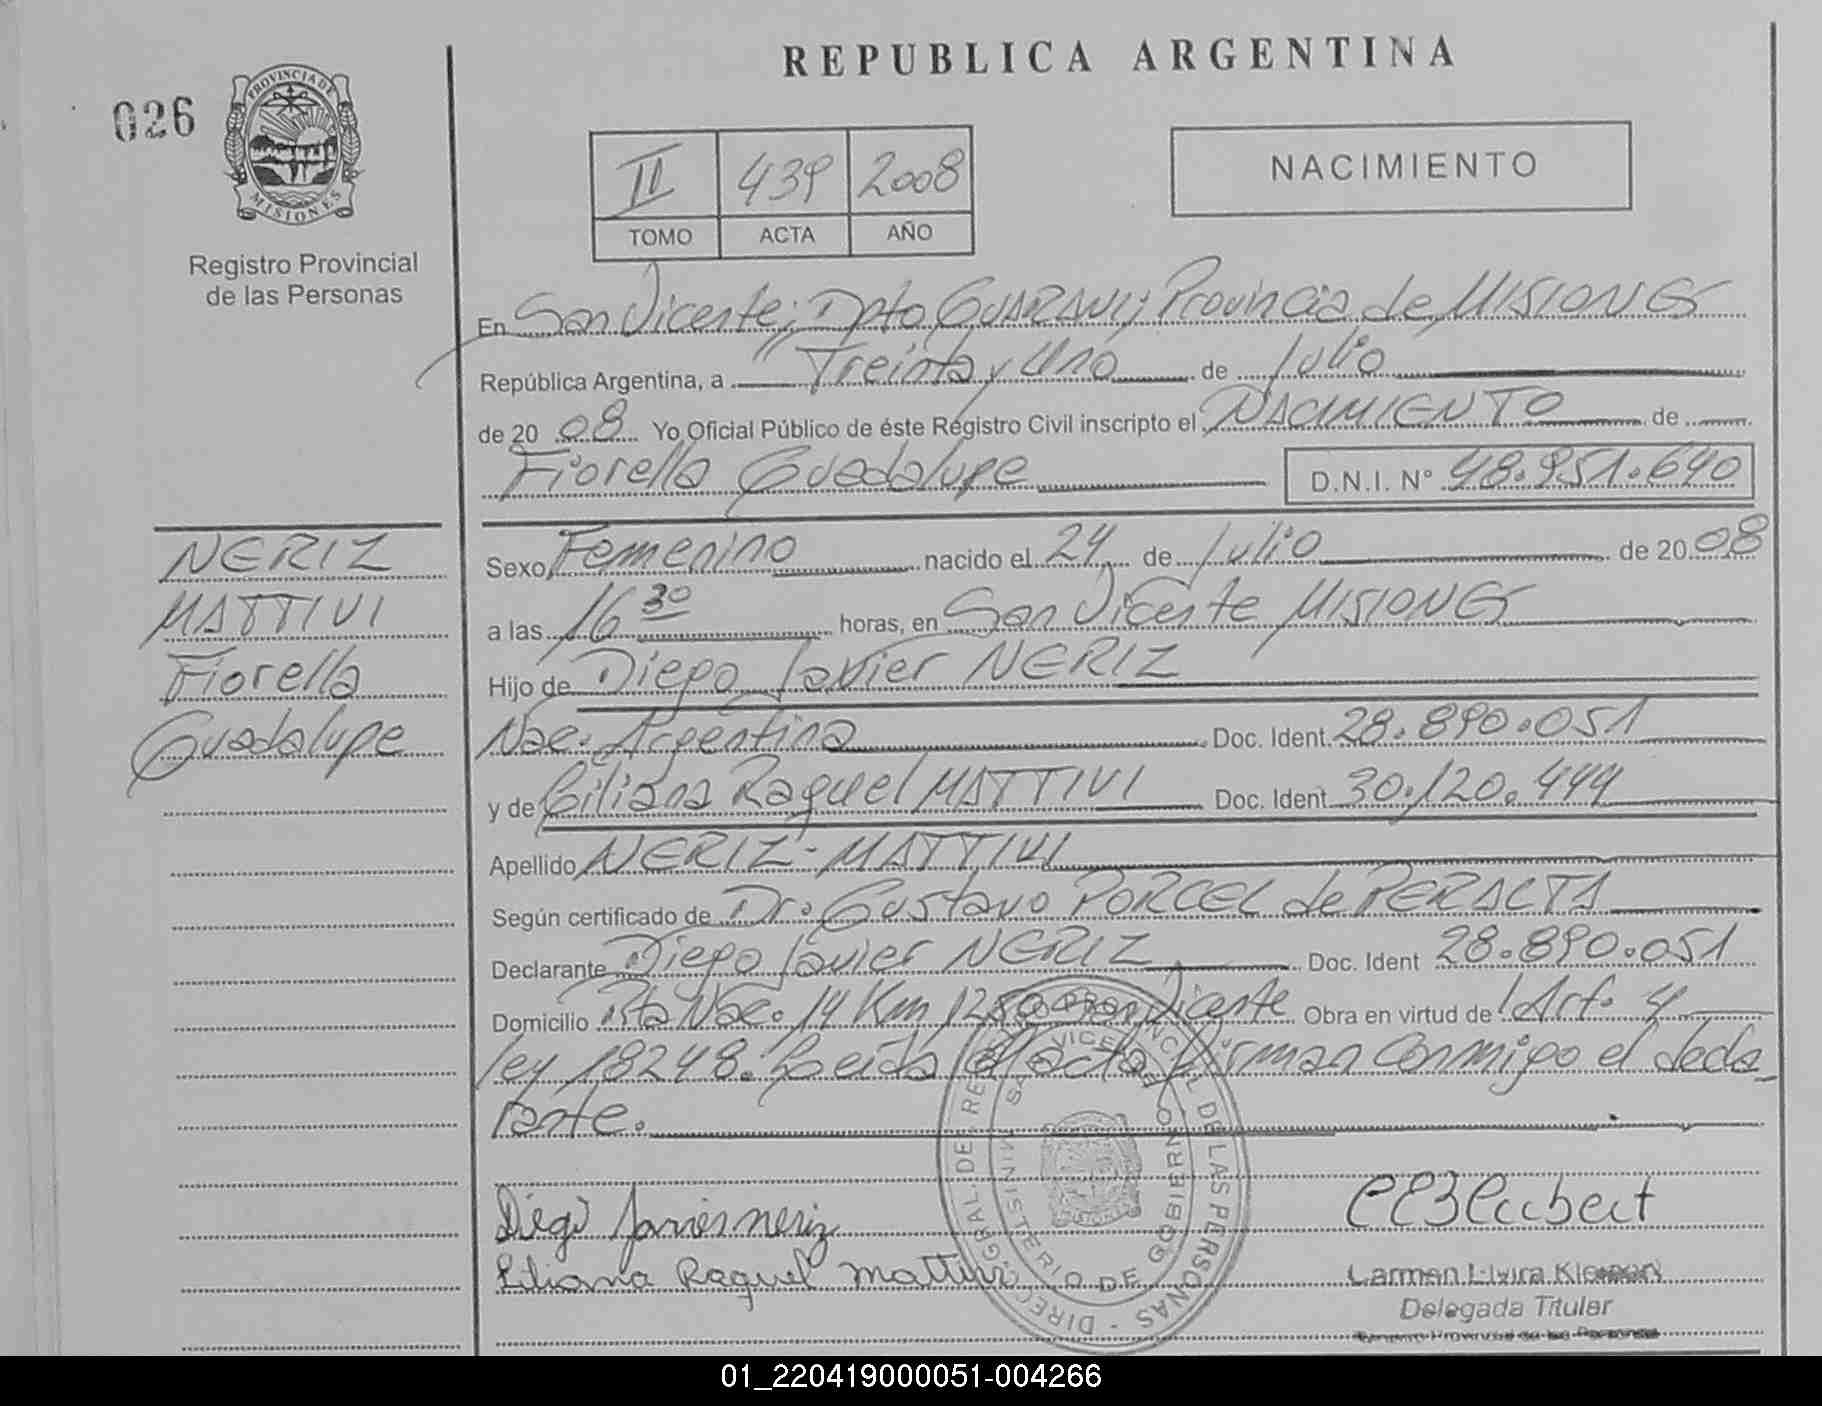 REPUBLICA ARGENTINA
026
PROVINCIA DE MISIONES
Registro Provincial
de las Personas
II 439 2008
TOMO ACTA AÑO
NACIMIENTO
En San Vicente; Dpto GUARANI; Provincia de MISIONES
República Argentina, a Treinta y Uno de Julio
de 2008 Yo Oficial Público de éste Registro Civil inscripto el NACIMIENTO de
Fiorella Guadalupe D.N.I. Nº 48.951.640
NERIZ
MATTIVI
Fiorella
Guadalupe
Sexo Femenino nacido el 24 de Julio de 2008
a las 16 30 horas, en San Vicente MISIONES
Hijo de Diego Javier NERIZ
Nac. Argentina Doc. Ident. 28.890.051
y de Liliana Raquel MATTIVI Doc. Ident 30.120.444
Apellido NERIZ-MATTIVI
Según certificado de Dr. Gustavo PORCEL de PERALTA
Declarante Diego Javier NERIZ Doc. Ident 28.890.051
Domicilio Rta Nac. 14 Km 1280 San Vicente Obra en virtud de Art. 4
ley 18248. Leida el acta, firman conmigo el decla_
rante.
Diego Javier neriz
Liliana Raquel Mattivi
Carmen Elvira
Delegada Titular
Registro Provincial de las Personas
DIREC. GRAL. DE REG. PROVINCIAL DE LAS PERSONAS
SAN VICENTE
MINISTERIO DE GOBIERNO
01_220419000051-004266